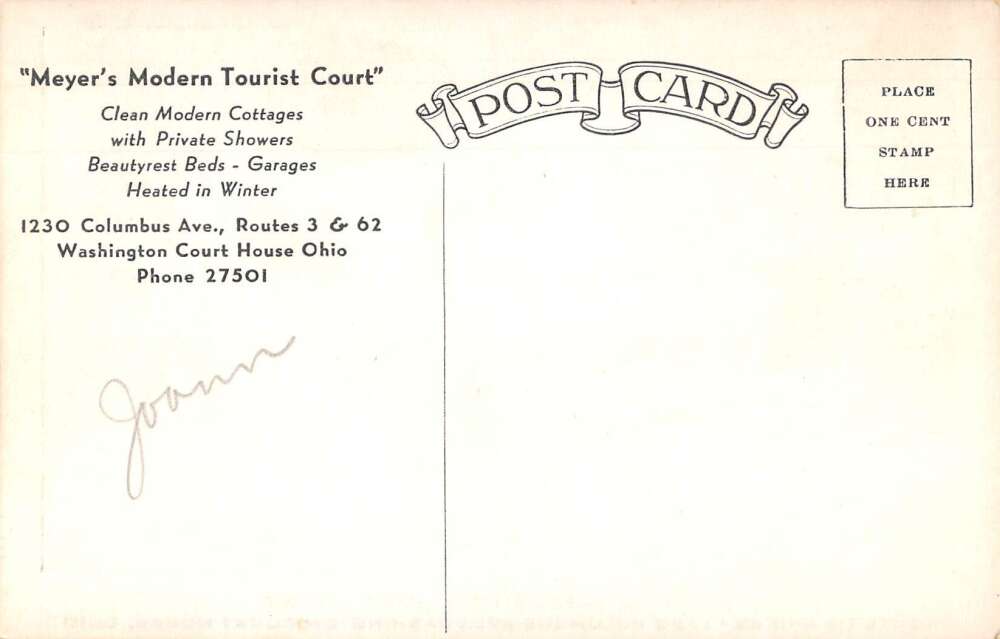 "Meyer's Modern Tourist Court"
Clean Modern Cottages
with Private Showers
Beautyrest Beds - Garages
Heated in Winter
1230 Columbus Ave., Routes 3 & 62
Washington Court House Ohio
Phone 27501
Joann
POST CARD
PLACE
ONE CENT
STAMP
HERE